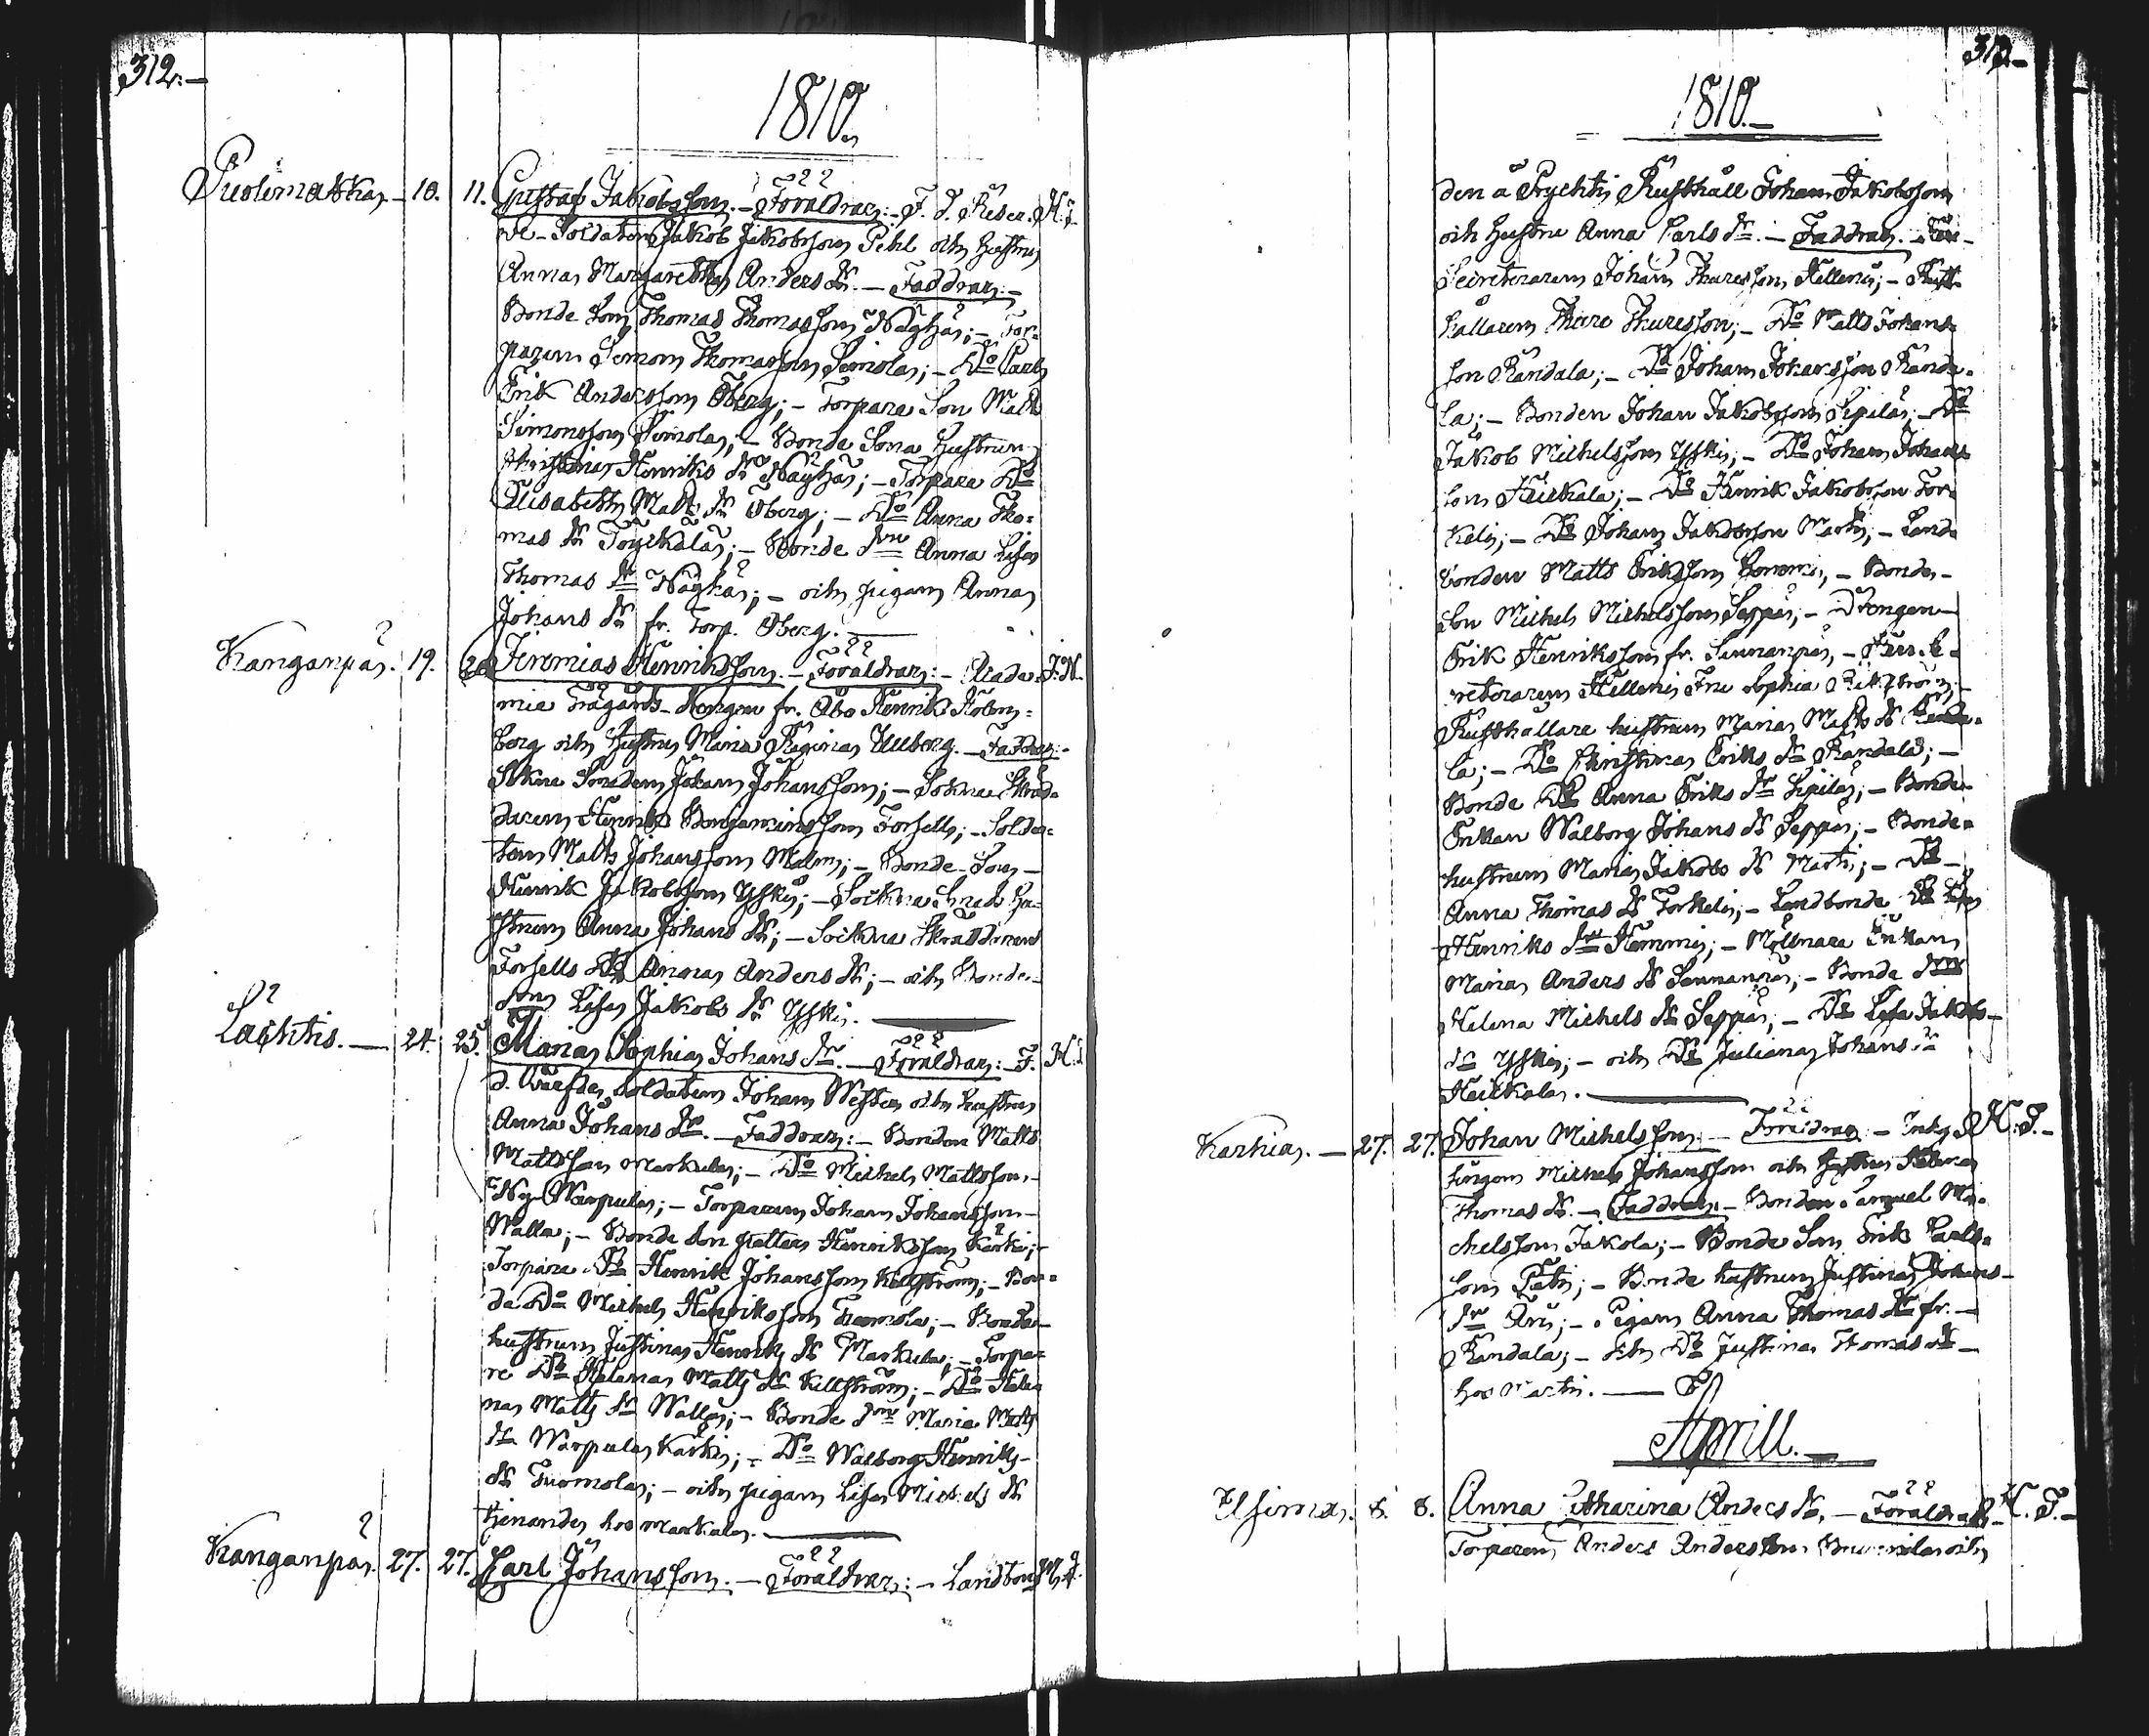 312.
1810.
Puolimatka. 10. 11. Gustaf Jakobsson. Föräldrar: F. d. Reser- H. F.
ve Soldaten Jakob Jakobsson Pehl och hustru
Anna Margaretha Anders dr. Faddrar:
Bonde Son Thomas Thomasson Näyhä; Tor-
paren Simon Thomasson Simola; Do Carl
Erik Andersson Öberg; Torpare Son Matts
Simonsson Simola; Bonde Sona hustrun
Christina Henriks dr Näyhä; Torpare Do
Elisabeth Matts dr Öberg; Do Anna Tho-
mas dr Töyckälä; Bonde drn Anna Lisa
Thomas dr Näyhä; och pigan Anna
Johans dr fr. Torp. Öberg.
Kanganpää. 19. 20. Jeremias Henriksson. Föräldrar: Acade- J. N.
mie Trägårds drengen fr. Åbo Henrik Holm-
berg och hustru Maria Regina Ulberg. Faddrar:
Sokne Smeden Johan Johansson; Sokne Skräd-
daren Henrik Benjaminsson Forsell; Solda-
ten Matts Johansson Malm; Bonde Son
Henrik Jakobsson Yski; Sokne Smeds hu-
strun Anna Johans dr; Sokne Skräddarens
Forsells Do Anna Anders dr; och Bonde
drn Lisa Jakobs dr Yski.
Lächtis. 24. 25. Maria Sophia Johans dr. Föräldrar: F. H. F.
d. Värfde Soldaten Johan Wester och hustru
Anna Johans dr. Faddrar: Bonden Matts
Mattsson Markula; Do Michel Mattsson
Ny Warpula; Torparen Johan Johansson
Walla; Bonde Son Petter Henriksson Kärki;
Torpare Do Henrik Johansson Kellström; Bon-
de Do Michel Henriksson Tuomola; Bonde
hustrun Justina Henriks dr Markula; Torpa-
re Do Helena Matts dr Kellström; Do Hele-
na Matts dr Walla; Bonde drn Maria Matts
dr Warpula Kärki; Do Walborg Henriks
dr Tuomola; och pigan Lisa Michels dr
tienande hos Markula.
Kanganpää. 27. 27. Carl Johansson. Föräldrar: Landbon-
313.
1810.
den å Prychtis Rusthåll Johan Jakobsson
och hustru Anna Carls dr. Faddrar:
Secreteraren Johan Thuresson Hellenius; Rust-
hållaren Thure Thuresson; Do Matts Johans-
son Randala; Do Johan Johansson Randa-
la; Bonden Johan Jakobsson Sipilä; Do
Jakob Michelsson Yski; Do Johan Johans-
son Heickala; Do Henrik Jakobsson Tor-
keli; Do Johan Jakobsson Martti; Land-
bonden Matts Eriksson Hemmi; Bonde
Son Michel Michelsson Seppä; Drengen
Erik Henriksson fr. Sunnanpää; Herr Se-
creteraren Hellenii Fru Sophia
Rusthållare hustrun Maria Matts dr Randa-
la; Do Christina Eriks dr Randala;
Bonde Do Anna Eriks dr Sipilä; Bonde
Enkan Walborg Johans dr Seppä; Bonde
hustrun Maria Jakobs dr Martti; Do
Anna Thomas dr Torkeli; Landbonde Do Lisa
Henriks dr Hemmi; Möllnare Enkan
Maria Anders dr Sunnanpää; Bonde drn
Helena Michels dr Seppä; Do Lisa Jakobs
dr Yski; och Do Juliana Johans dr
Heickala.
Karhia. 27. 27. Johan Michelsson. Föräldrar: Inhy- H. F.
singen Michel Johansson och hustru Helena
Thomas dr. Faddrar: Bonden Samuel Mi-
chelsson Jakola; Bonde Son Erik Carls-
son Pätti; Bonde hustrun Justina Johans
dr Anu; Pigan Anna Thomas dr fr.
Randala; och Do Justina Thomas dr
hos Martti.
Aprill.
8. 8. Anna Catharina Anders dr. Föräldrar: H. F.
Torparen Anders Andersson och